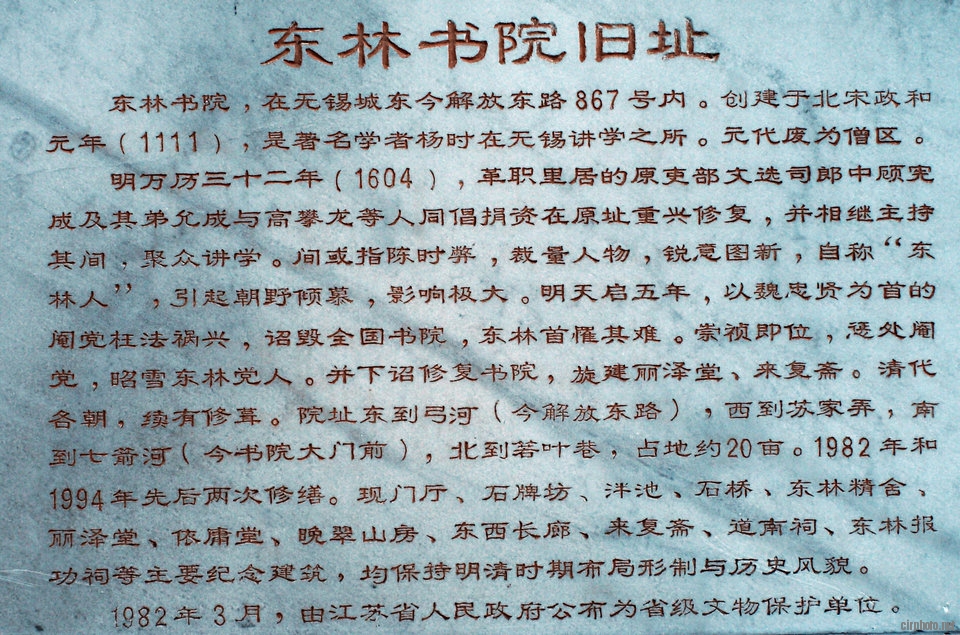 东林书院旧址
东林书院，在无锡城东今解放东路867号内。创建于北宋政和
元年（1111），是著名学者杨时在无锡讲学之所。元代废为僧区。
明万历三十二年（1604），革职里居的原吏部文选司郎中顾宪
成及其弟允成与高攀龙等人同倡捐资在原址重兴修复，并相继主持
其间，聚众讲学。间或指陈时弊，裁量人物，锐意图新，自称“东
林人”，引起朝野倾慕，影响极大。明天启五年，以魏忠贤为首的
阉党枉法祸兴，诏毁全国书院，东林首罹其难。崇祯即位，惩处阉
党，昭雪东林党人。并下诏修复书院，旋建丽泽堂、来复斋。清代
各朝，续有修葺。院址东到弓河（今解放东路），西到苏家弄，南
到七箭河（今书院大门前），北到若叶巷，占地约20亩。1982年和
1994年先后两次修缮。现门厅、石牌坊、泮池、石桥、东林精舍、
丽泽堂、依庸堂、晚翠山房、东西长廊、来复斋、道南祠、东林报
功祠等主要纪念建筑，均保持明清时期布局形制与历史风貌。
1982年3月，由江苏省人民政府公布为省级文物保护单位。
cirphoto.net